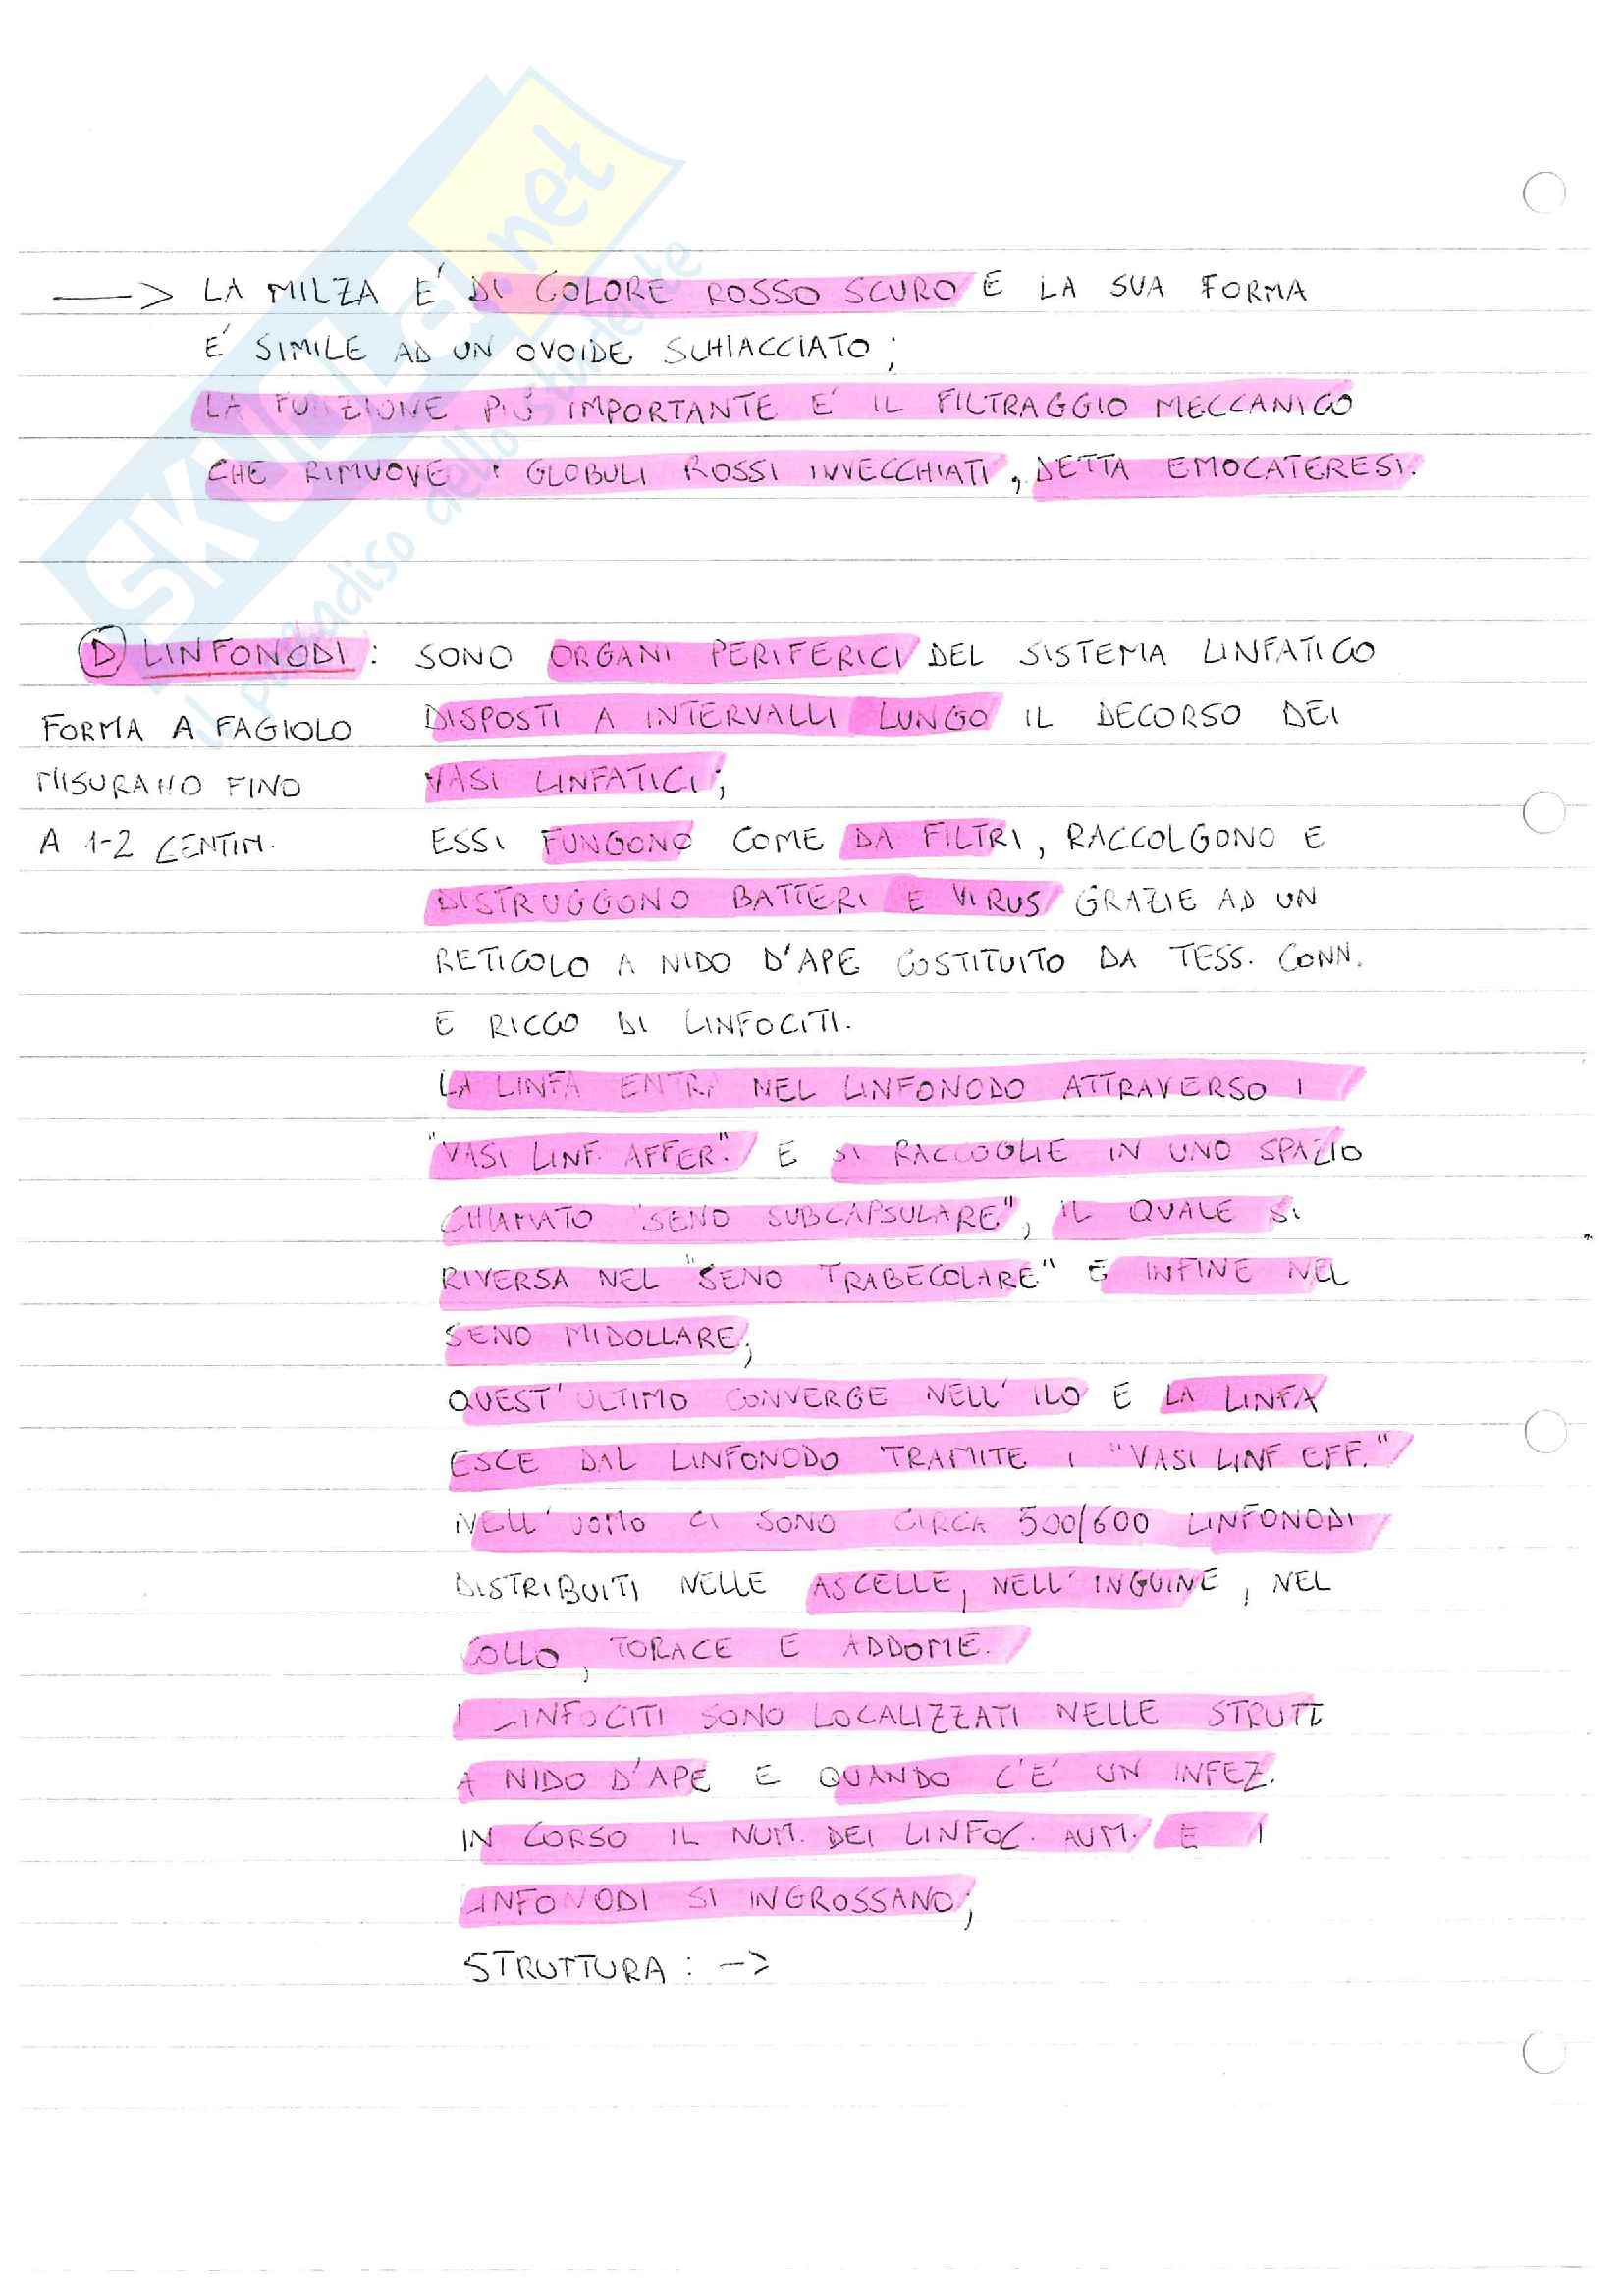 SKUOLA.net
il paradiso dello studente
—> LA MILZA E' DI COLORE ROSSO SCURO E LA SUA FORMA
E' SIMILE AD UN OVOIDE SCHIACCIATO;
LA FUNZIONE PIÚ IMPORTANTE E' IL FILTRAGGIO MECCANICO
CHE RIMUOVE I GLOBULI ROSSI INVECCHIATI, DETTA EMOCATERESI.
D LINFONODI: SONO ORGANI PERIFERICI DEL SISTEMA LINFATICO
DISPOSTI A INTERVALLI LUNGO IL DECORSO DEI
VASI LINFATICI;
FORMA A FAGIOLO
MISURANO FINO
A 1-2 CENTIM.
ESSI FUNGONO COME DA FILTRI, RACCOLGONO E
DISTRUGGONO BATTERI E VIRUS GRAZIE AD UN
RETICOLO A NIDO D'APE COSTITUITO DA TESS. CONN.
E RICCO DI LINFOCITI.
LA LINFA ENTRA NEL LINFONODO ATTRAVERSO I
"VASI LINF. AFFER." E SI RACCOGLIE IN UNO SPAZIO
CHIAMATO "SENO SUBCAPSULARE", IL QUALE SI
RIVERSA NEL "SENO TRABECOLARE" E INFINE NEL
SENO MIDOLLARE;
QUEST'ULTIMO CONVERGE NELL'ILO E LA LINFA
ESCE DAL LINFONODO TRAMITE I "VASI LINF EFF."
NELL'UOMO CI SONO CIRCA 500/600 LINFONODI
DISTRIBUITI NELLE ASCELLE, NELL'INGUINE, NEL
COLLO, TORACE E ADDOME.
I LINFOCITI SONO LOCALIZZATI NELLE STRUTT
A NIDO D'APE E QUANDO C'E' UN INFEZ.
IN CORSO IL NUM. DEI LINFOC. AUM. E I
LINFONODI SI INGROSSANO;
STRUTTURA: ->